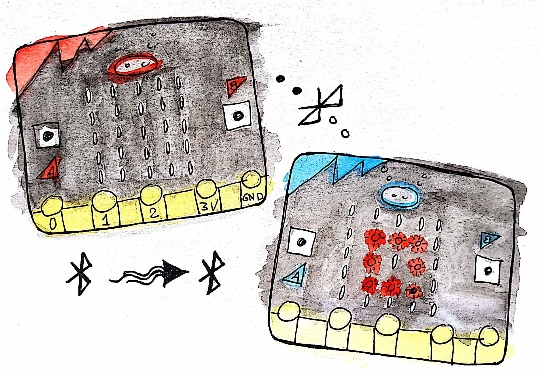 B
A
0 1 2 3V GND
A